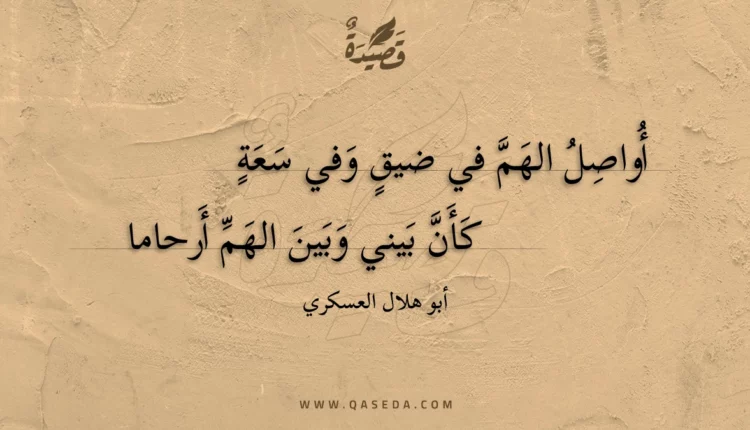 قَصِيدَةٌ
أُواصِلُ الهَمَّ في ضيقٍ وَفي سَعَةٍ
كَأَنَّ بَيني وَبَينَ الهَمِّ أَرحاما
أبو هلال العسكري
WWW.QASEDA.COM